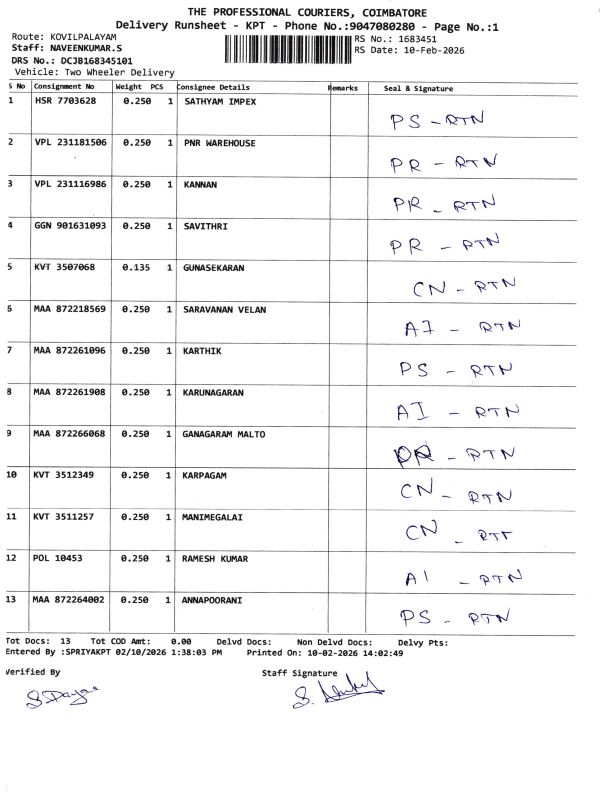 THE PROFESSIONAL COURIERS, COIMBATORE
Delivery Runsheet - KPT - Phone No.:9047080280 - Page No.:1
Route: KOVILPALAYAM RS No.: 1683451
Staff: NAVEENKUMAR.S RS Date: 10-Feb-2026
DRS No.: DCJB168345101
Vehicle: Two Wheeler Delivery
S No Consignment No Weight PCS Consignee Details Remarks Seal & Signature
1 HSR 7703628 0.250 1 SATHYAM IMPEX PS - RTN
2 VPL 231181506 0.250 1 PNR WAREHOUSE PR - RTN
3 VPL 231116986 0.250 1 KANNAN PR - RTN
4 GGN 901631093 0.250 1 SAVITHRI PR - RTN
5 KVT 3507068 0.135 1 GUNASEKARAN CN - RTN
6 MAA 872218569 0.250 1 SARAVANAN VELAN AI - RTN
7 MAA 872261096 0.250 1 KARTHIK PS - RTN
8 MAA 872261908 0.250 1 KARUNAGARAN AI - RTN
9 MAA 872266068 0.250 1 GANAGARAM MALTO PR - RTN
10 KVT 3512349 0.250 1 KARPAGAM CN - RTN
11 KVT 3511257 0.250 1 MANIMEGALAI CN - RTT
12 POL 10453 0.250 1 RAMESH KUMAR AI - RTN
13 MAA 872264002 0.250 1 ANNAPOORANI PS - RTN
Tot Docs: 13 Tot COD Amt: 0.00 Delvd Docs: Non Delvd Docs: Delvy Pts:
Entered By :SPRIYAKPT 02/10/2026 1:38:03 PM Printed On: 10-02-2026 14:02:49
Verified By Staff Signature